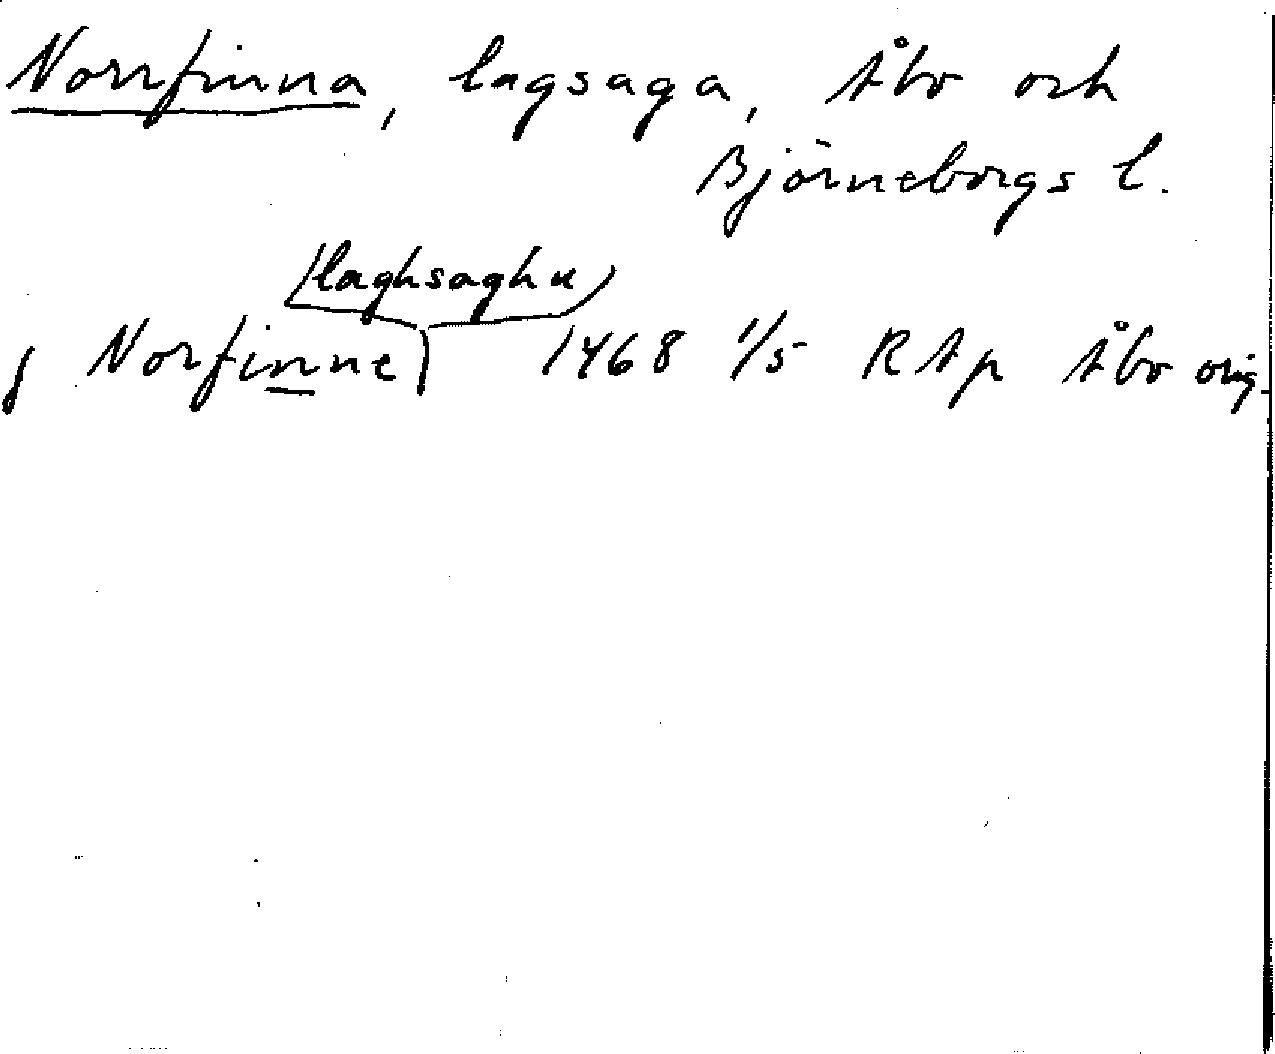 Norrfinna, lagsaga, Åbo och
Björneborgs l.
(laghsaghu)
j Norfinne) 1468 1/5 RAp Åbo orig.